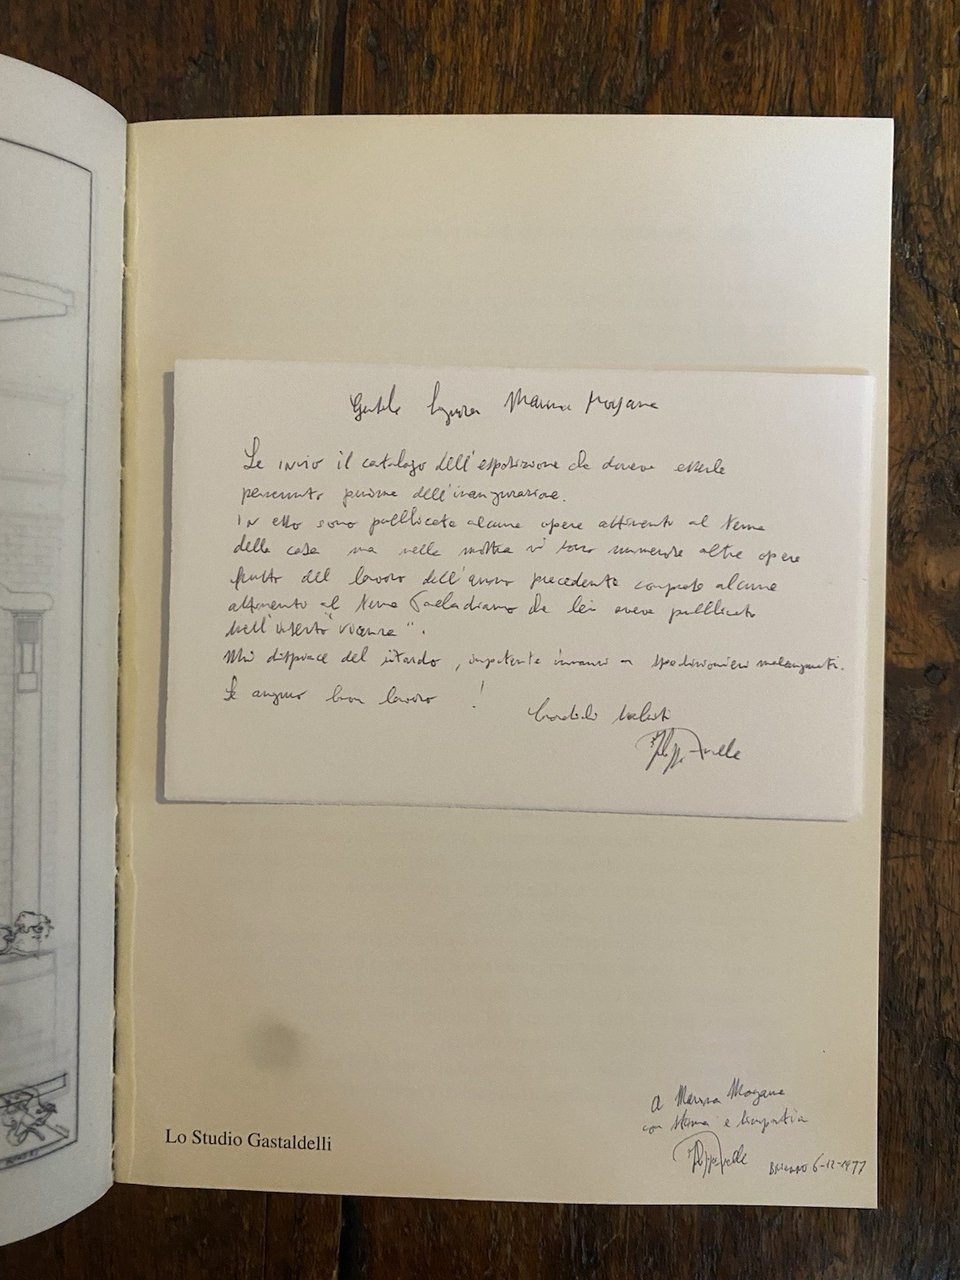 Gentile Signora Marina Morgana
Le invio il catalogo dell'esposizione che doveva esserle
pervenuto prima dell'inaugurazione.
In esso sono pubblicate alcune opere attinenti al tema
della casa ma nella mostra vi sono numerose altre opere
frutto del lavoro dell'anno precedente comprese alcune
attinenti al tema Palladiano che lei aveva pubblicato
nell'inserto "Vicenza".
Mi dispiace del ritardo, impotente innanzi a spedizionieri
Le auguro buon lavoro !
Cordiali saluti
Lo Studio Gastaldelli
A Morgana
con stima e simpatia
6-12-1977